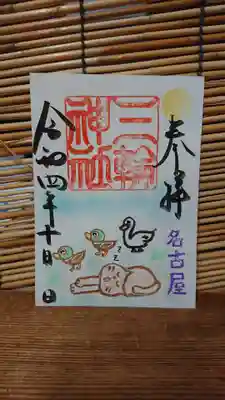 奉拝
名古屋
三輪
神社
令和四年十月 日
z
z
z